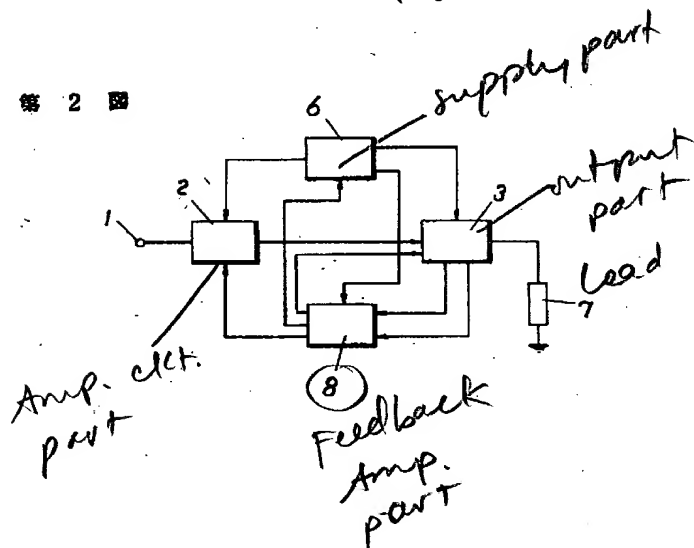 第 2 図
6
supply part
2
3
output
part
1
Load
7
8
Amp. ckt.
part
Feedback
Amp.
part